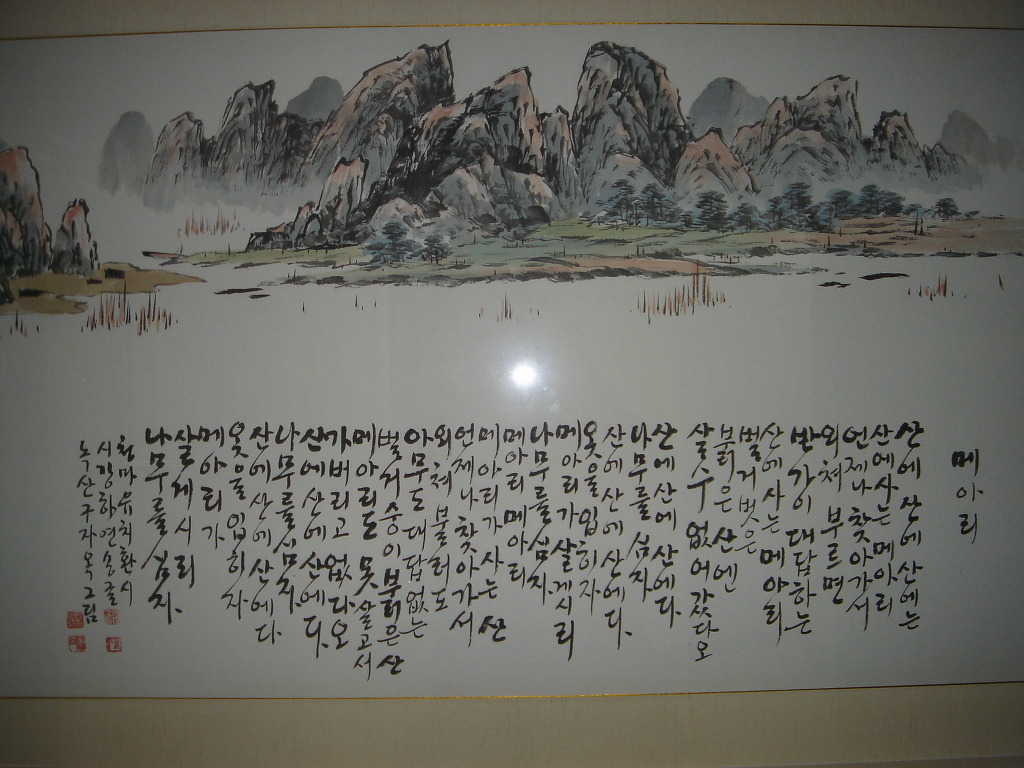 메아리
산에 산에 산에는
산에 사는 메아리
언제나 찾아가서
외쳐 부르면
반가이 대답하는
산에 사는 메아리
벌거벗은
붉은 산엔
살수 없어 갔다오
산에 산에 산에다
나무를 심자
산에 산에 산에다.
옷을 입히자
메아리가 살게시리
나무를 심자.
메아리 메아리
메아리가 사는 산
언제나 찾아가서
외쳐 불러도
아무도 대답 없는
벌거숭이 붉은 산
메아리도 못 살고서
가버리고 없다오
산에 산에 산에다.
나무를 심자.
산에 산에 산에다
옷을 입히자
메아리가
살게시리
나무를 심자.
천마 유치환 시
시강하연송 글
녹산 구자옥 그림